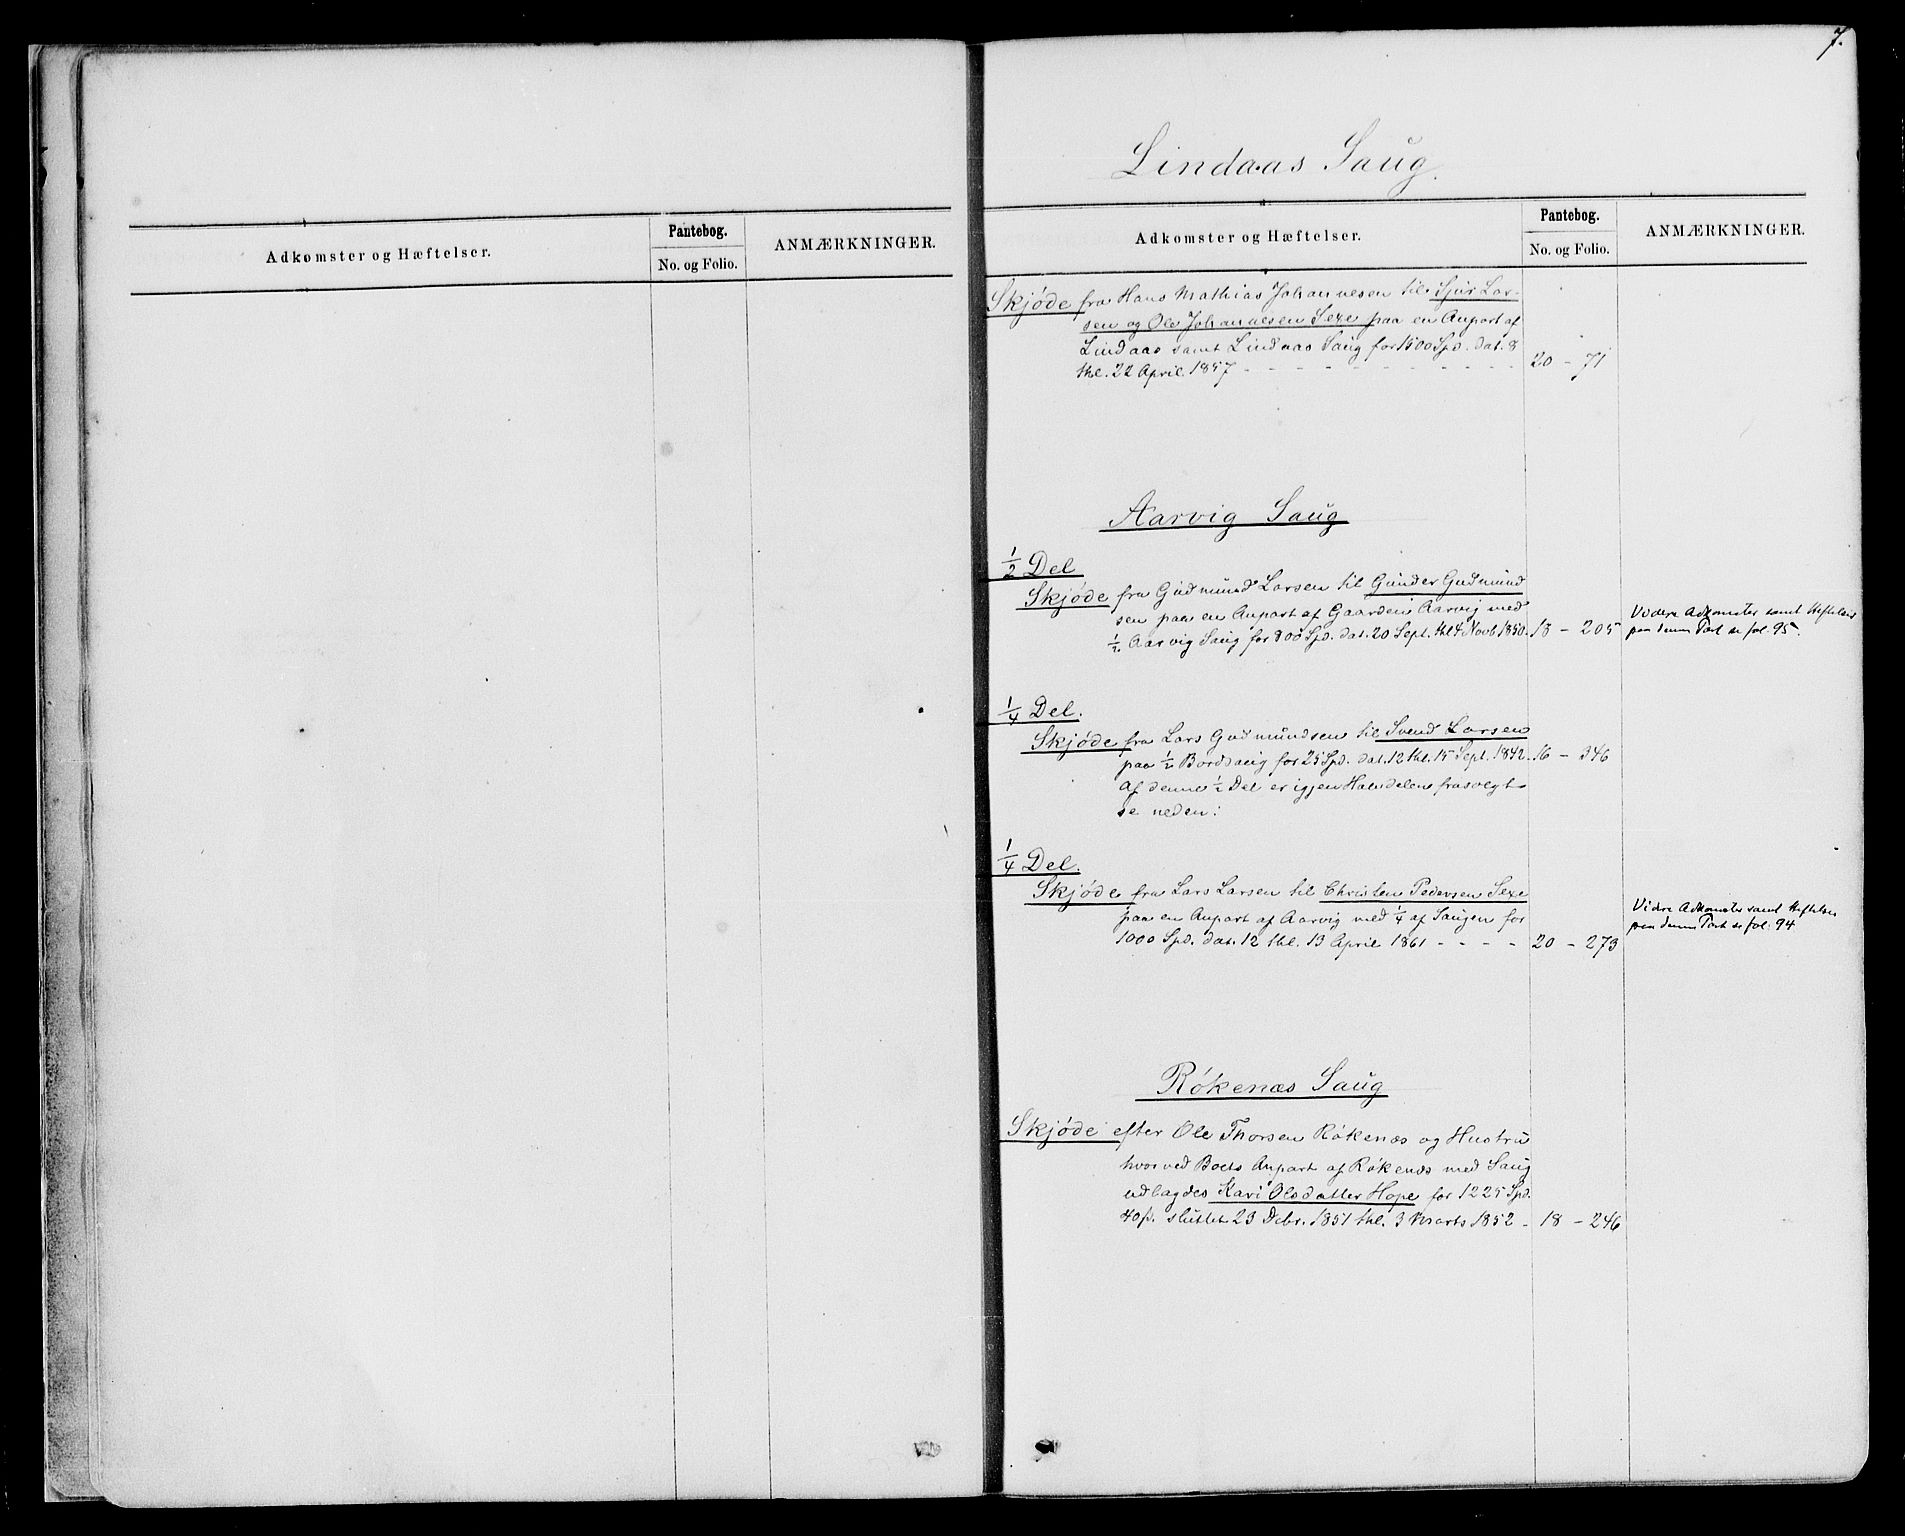 7.
Adkomster og Hæftelser.
Pantebog.
No. og Folio.
ANMÆRKNINGER.
Lindaas Saug.
Adkomster og Hæftelser.
Pantebog.
No. og Folio.
ANMÆRKNINGER.
Skjøde fra Hans Mathias Johannesen til Sjur Lar-
sen og Ole Johannesen Sexe paa en Anpart af
Lindaas samt Lindaas Saug for 1500 Spd. dat. 8
thl. 22 April. 1857 - - - - - - - - 20 - 71
Aarvig Saug
1/2 Del
Skjøde fra Gudmund Larsen til Gunder Gudmund
sen paa en Anpart af Gaarden Aarvig med
1/2 Aarvig Saug for 800 Spd. dat. 20 Sept. thl 4 Novb 1850. 18 - 205
Videre Adkomster samt Heftelser
paa denne Part se fol. 95.
1/4 Del.
Skjøde fra Lars Gudmundsen til Svend Larsen
paa 1/2 Bordsaug for 25 Spd. dat. 12 thl. 15 Sept. 1842. 16 - 346
Af denne 1/2 Del er igjen Halvdelen frasolgt
se neden:
1/4 Del.
Skjøde fra Lars Larsen til Christen Pedersen Sexe
paa en Anpart af Aarvig med 1/4 af Saugen for
1000 Spd. dat. 12 thl. 13 April 1861 - - - - 20 - 273
Videre Adkomster samt Heftelser
paa denne Part se fol: 94
Røkenæs Saug
Skjøde efter Ole Thorsen Røkenæs og Hustru
hvorved Boets Anpart af Røkenæs med Saug
udlagdes Kari Olsdatter Hope for 1225 Spd.
40 s. sluttet 23 Debr. 1851 thl. 3 Marts 1852 - 18 - 246